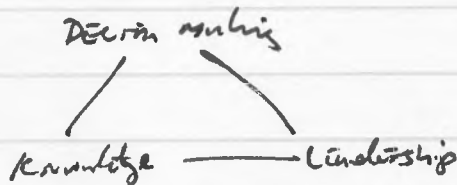 Decision making
Knowledge Leadership